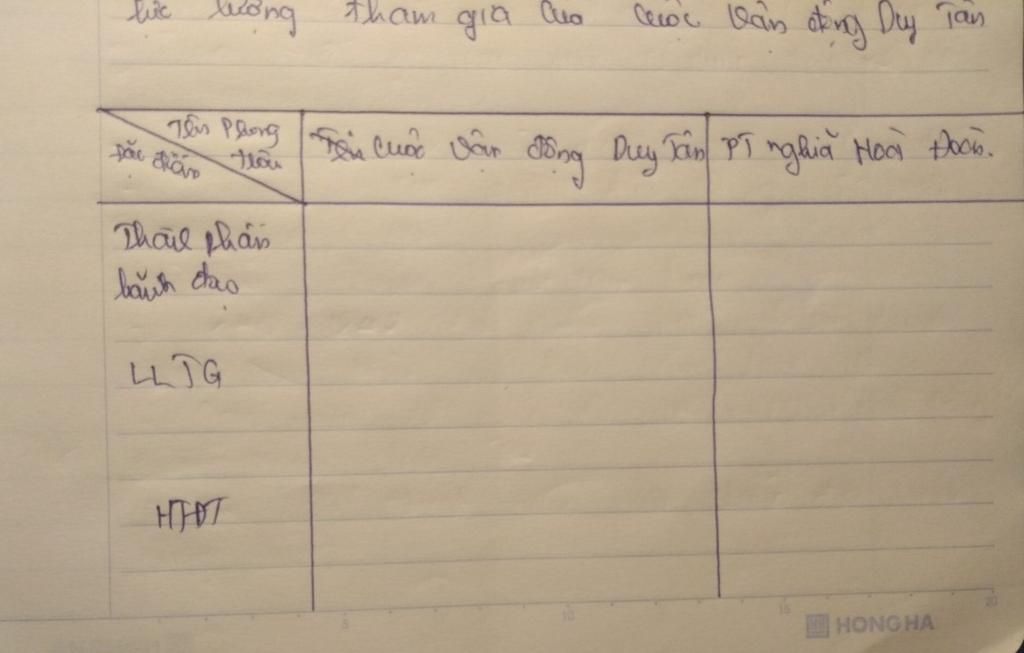 lực lượng tham gia của cuộc vận động Duy Tân
Tên Phong trào
Đặc điểm
Cuộc vận động Duy Tân
PT nghĩa Hoà Đoàn.
Thành phần
lãnh đạo
LLTG
HTĐT
5 10 15 20
HONG HA